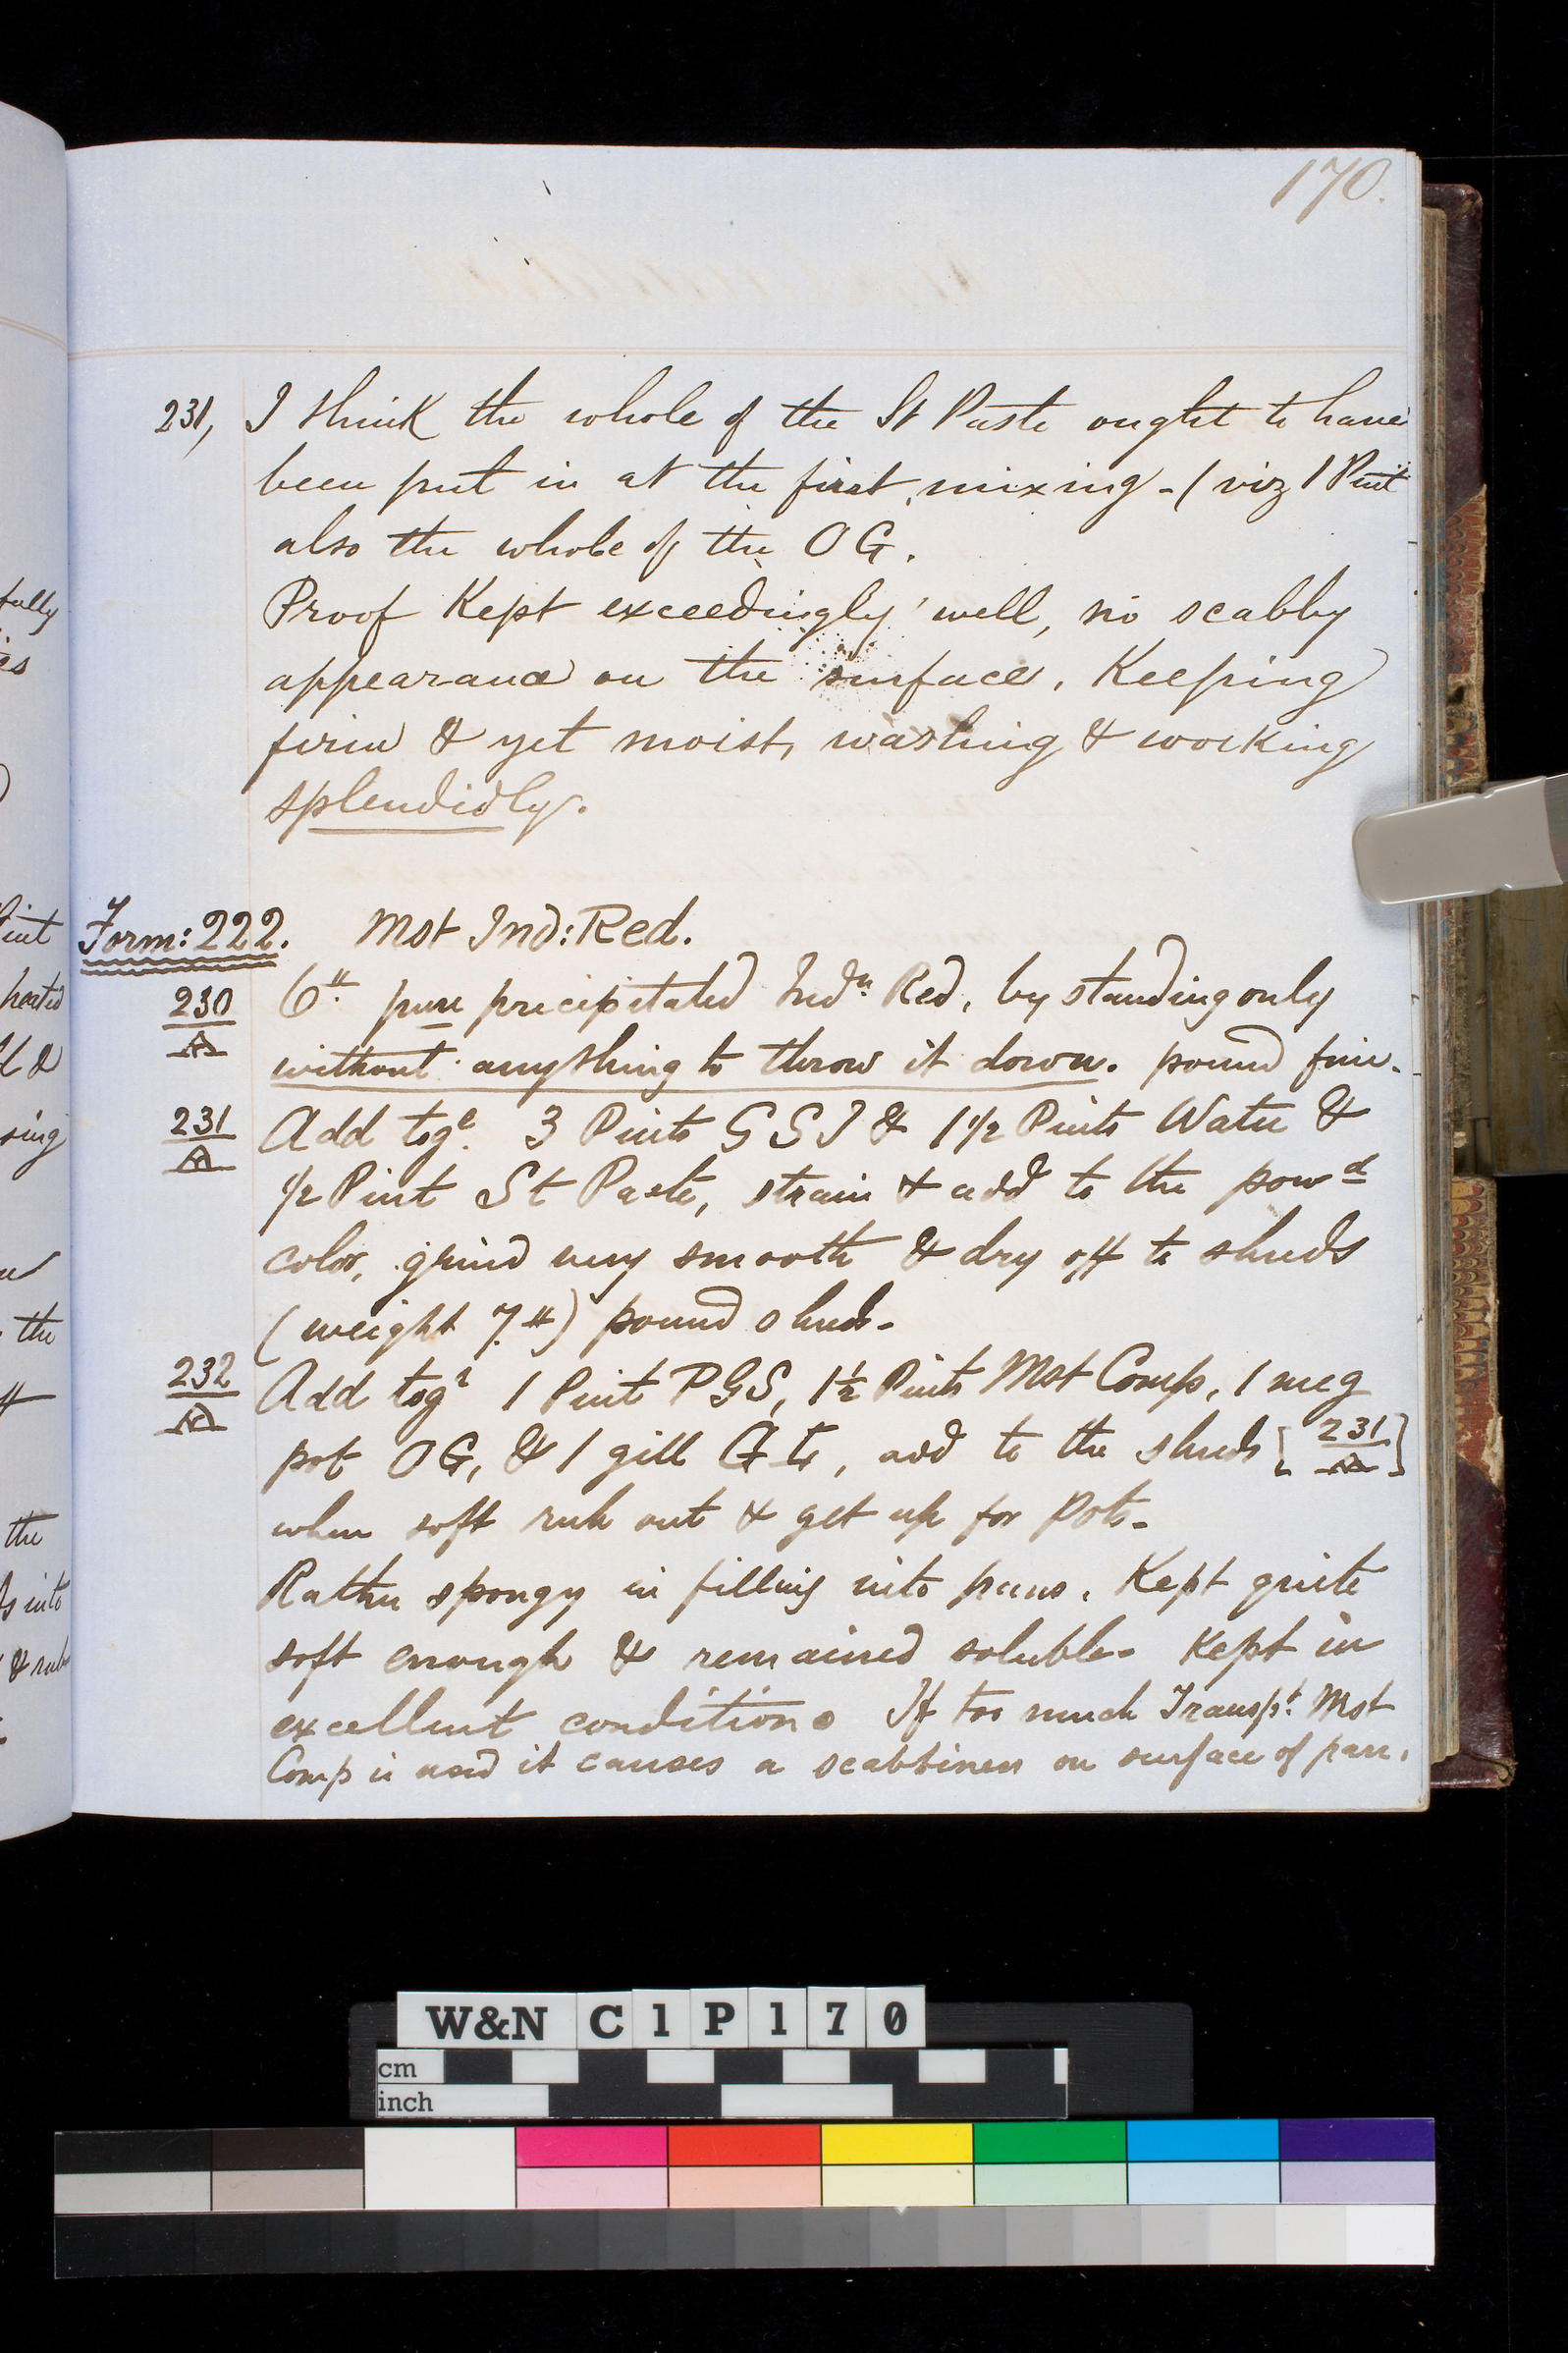 170.
231, I think the whole of the St Paste ought to have
been put in at the first mixing - (viz 1 Pint
also the whole of the OG.
Proof Kept exceedingly well, no scabby
appearance on the surface, Keeping
firm & yet moist, washing & working
splendidly.
Form: 222. Mst Ind: Red.
230 6 pure precipitated Indn Red, by standing only
without anything to throw it down. pound fine.
231 Add togr 3 Pints GSJ & 1 1/2 Pints Water &
1/2 Pint St Paste, strain & add to the powd
color, grind very smooth & dry off to shreds
(weight 7 ) pound shreds.
232 Add togr 1 Pint PGS, 1 1/2 Pints Mst Comp, 1 meg
pot OG, & 1 gill add to the shreds [231]
when soft rub out & get up for Pots.
Rather spongy in filling into pans. Kept quite
soft enough & remained soluble. Kept in
excellent condition. If too much Transpt Mst
Comp is used it causes a scabbiness on surface of pan.
fully
es
Pint
heated
& 
sing
the
the
into
& rub
W&N C1P170
cm
inch